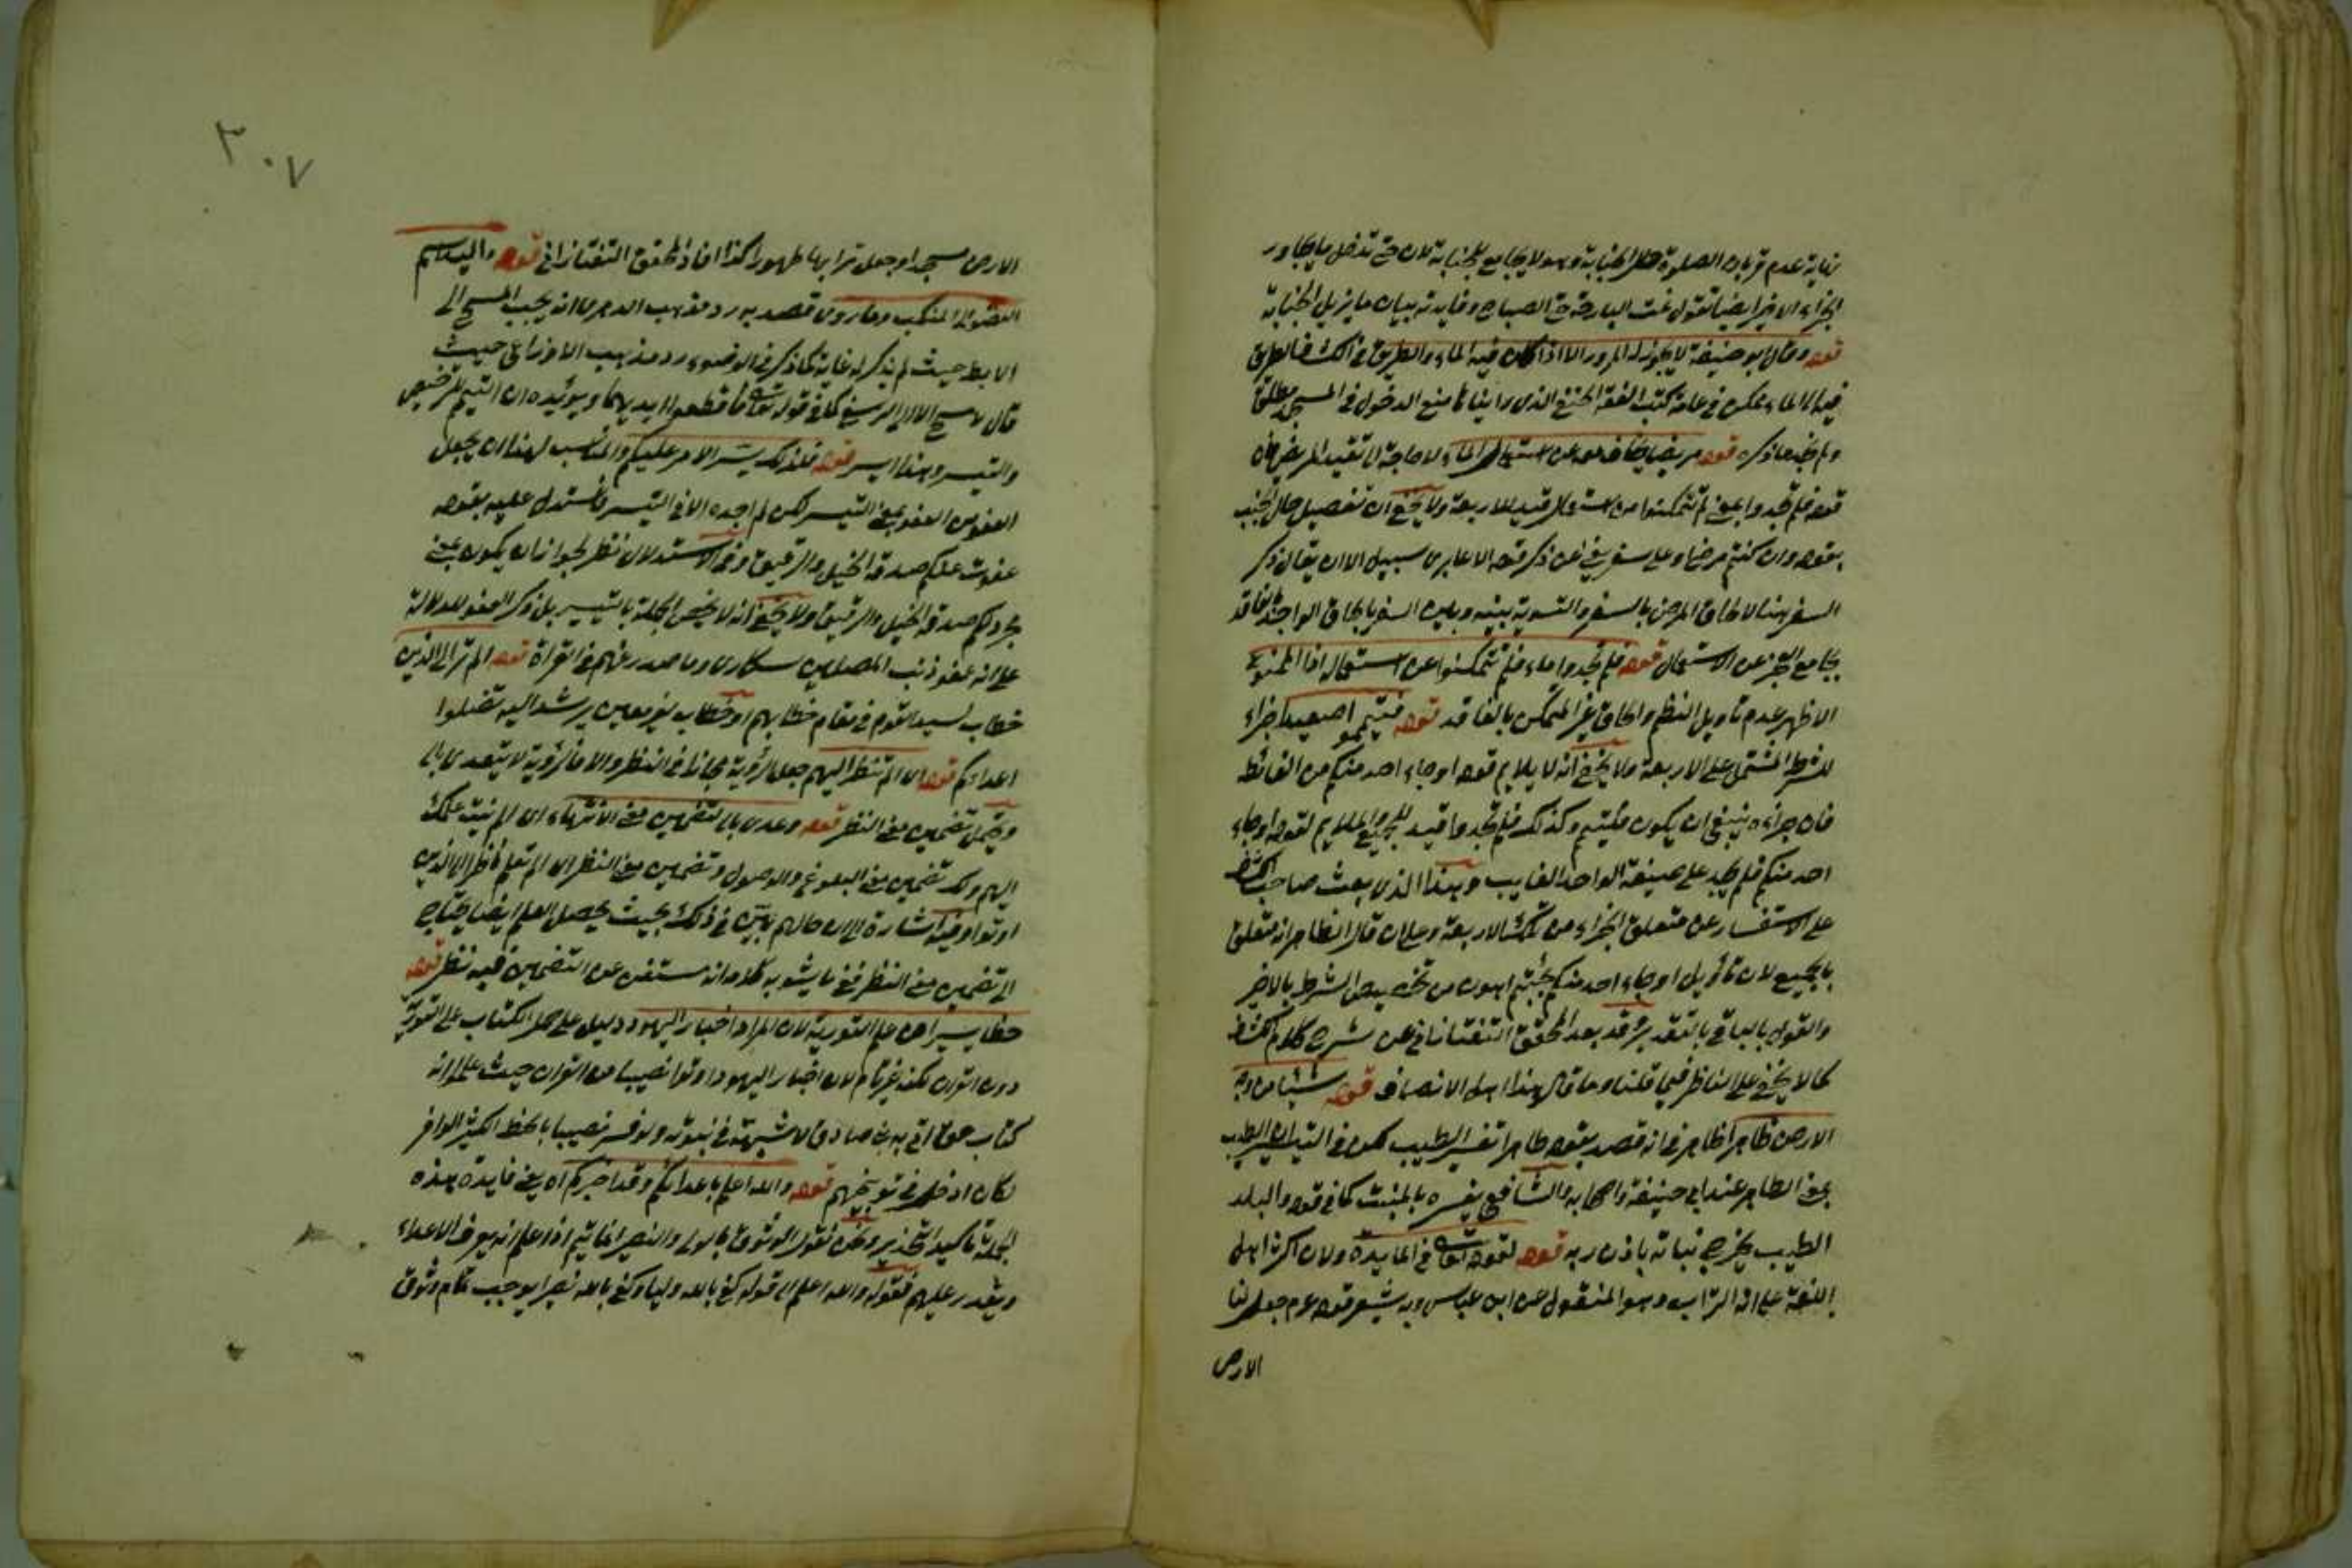 غاية عدم قربان الصلوة حال الجنابة وهو لا يجامع الجنابة لان حتى تدخل ما يجاور
الجزاء الاخير ايضا تقول نمت البارحة حتى الصباح وفايدته بيان ما يزيل الجنابة
قوله وقال ابو حنيفة لا يجوز له المرور الا اذا كان فيه الماء والطريق في الكشاف الطريق
فيه الى الماء لكن في عامة كتب الفقه الحنفي الذي راينا منع الدخول في المسجد مطلقا
ولم نجد ما ذكره قوله مريضا يخاف معه من استعمال الماء لا حاجة الى تقييد المرض فان
قوله فلم تجدوا بمعنى لم تتمكنوا من استعماله قيد للاربعة ولا يخفى ان تفصيل حال الجنب
بقوله وان كنتم مرضى او على سفر يغني عن ذكر قوله الا عابري سبيل الا ان يقال ذكر
السفر هنا لالحاق المرض بالسفر والتسوية بينه وبين السفر بالحاق الواجد بالفاقد
بجامع العجز عن الاستعمال قوله فلم تجدوا ماء فلم تتمكنوا من استعماله اذ الممنوع
الاظهر عدم تاويل النظم والحاق غير المتمكن بالفاقد قوله فتيمموا صعيدا جزاء
للشرط المشتمل على الاربعة ولا يخفى انه لا يلايم قوله او جاء احد منكم من الغائط
فان جزاءه ينبغي ان يكون فليتيمم وكذلك فلم تجدوا قيد للجميع والملايم لقوله او جاء
احد منكم فلم يجد على صيغة الواحد الغايب وهذا الذي بعث صاحب الكشاف
على الاستفسار عن متعلق الجزاء من تلك الاربعة وعلى ان قال الظاهر انه متعلق
بالجميع لان تاويل او جاء احد منكم بجئتم اهون من تخصيص الشرط بالاخير
والقول بالباقي بالتقدير وقد بعد المحقق التفتازاني عن شرح كلام الكشاف
كما لا يخفى على الناظر فيما قلنا وما قال هذا اهل الانصاف قوله شيئا من وجه
الارض طاهرا ظاهر في انه قصد بقوله طاهرا تفسير الطيب لكن في التيسير ان الطيب
بمعنى الطاهر عند ابي حنيفة واصحابه والشافعي يفسره بالمنبت كما في قوله والبلد
الطيب يخرج نباته باذن ربه قوله لقوله تعالى في المايدة ولان اكثر اهل
اللغة على انه التراب وهو المنقول عن ابن عباس وبه يشعر قوله عم جعلت لنا
الارض
٣٠٧
الارض مسجدا وجعل ترابها طهورا كذا افاد المحقق التفتازاني قوله واليد اسم
للعضو الى المنكب وما روي قصد به رد مذهب الزهري انه يجب المسح الى
الابط حيث لم يذكر له غاية كما ذكر في الوضوء ورد مذهب الاوزاعي حيث
قال يمسح الى الرسغ كما في قوله تعالى فاقطعوا ايديهما ويؤيده ان التيمم للترخيص
والتيسير وهذا ايسر قوله فلذلك يسر الامر عليكم والمناسب لهذا ان يجعل
العفو من العفو بمعنى التيسير لكن لم اجده الا في التيسير فاستدل عليه بقوله
عفوت عليكم صدقة الخيل والرقيق وفي الاستدلال نظر لجواز ان يكون بمعنى
تركت لكم صدقة الخيل والرقيق ولا يخفى انه لا يخص الجملة بالتيسير بل ذكر العفو للدلالة
على انه عفو ذنب المصلين سكارى وما صدر عنهم في القراة قوله الم تر الى الذين
خطاب لسيد القوم في مقام خطابهم او خطاب لغير معين يرشد اليه تضلوا
اعدائكم قوله اي الم تنظر اليهم جعل الرؤية مجازا في النظر والا فالرؤية لا يتعدى بالى
ويحتمل تضمين معنى النظر قوله وعدي بالى لتضمين معنى الانتهاء اي الم ينته علمك
اليهم ولك تضمين معنى البلوغ والوصول وتضمين معنى النظر اي الم تعلم ناظرا الى الذين
اوتوا وفيه اشارة الى ان حالهم بين في ذلك بحيث يحصل العلم ايضا يحتاج
الى تضمين معنى النظر فما يشوبه كلامه انه مستغن عن التضمين فيه نظر قوله
حظا يسيرا من علم التورية لان المراد احبار اليهود دليل على حمل الكتاب على التورية
دون القران لكنه غير تام لان احبار اليهود اوتوا نصيبا من القران حيث علموا انه
كتاب حق اتى به نبي صادق لا شبهة في نبوته ولو فسر نصيبا بالحظ الكثير الوافر
لكان ادخل في توبيخهم قوله والله اعلم باعدائكم وقد اخبركم اه يعني فايدة هذه
الجملة تاكيد التحذير ونحن نقول الوثوق بالولي والنصير انما يتم اذا علم انه يعرف الاعداء
ويقدر عليهم فقوله والله اعلم الى قوله كفى بالله وليا وكفى بالله نصيرا يوجب تمام وثوق